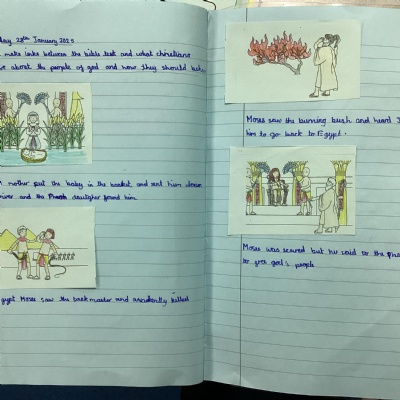 day 28th January 2025
make links between the bible text and what christians
about the people of god and how they should be
mother put the baby in the basket and sent him down
river and the Pharoh daughter found him
gypt Moses saw the task master and accidently killed
Moses saw the burning bush and heard
him to go back to Egypt.
Moses was scared but he said to the Pha
to free god's people